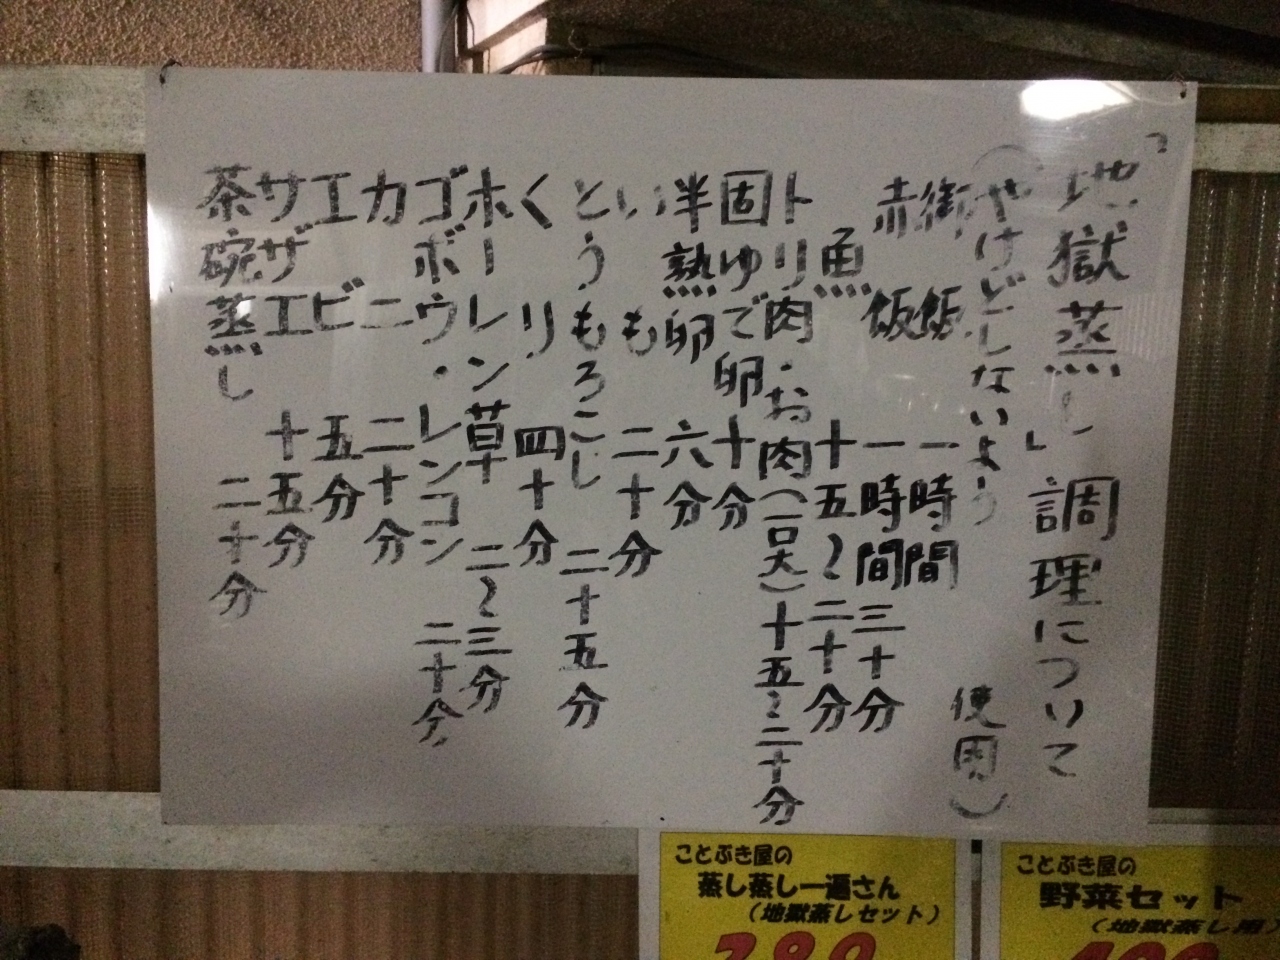 「地獄蒸し」調理について
(やけどしないよう 使用)
御飯 一時間
赤飯 一時間三十分
魚 十五~二十分
トリ肉・お肉(一口大)十五~二十分
固ゆで卵 十分
半熟卵 六分
いも 二十分
とうもろこし 二十五分
くり 四十分
ホーレン草 二~三分
ゴボウ・レンコン 二十分
カニ 二十分
エビ 五分
サザエ 十五分
茶碗蒸し 二十分
ことぶき屋の
蒸し蒸し一遍さん
(地獄蒸しセット)
ことぶき屋の
野菜セット
(地獄蒸し用)